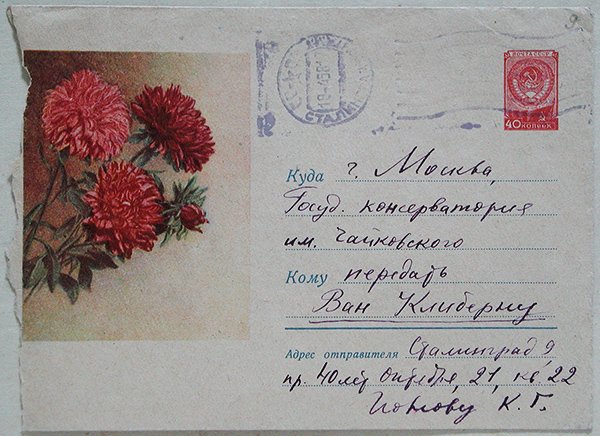 9
ПОЧТА СССР
40 КОПЕЕК
Куда г. Москва,
Госуд. консерватория
им. Чайковского
Кому передать
Ван Клиберну
Адрес отправителя Сталинград 9
пр. 40 лет Октября, 21, кв 22
К. Г.